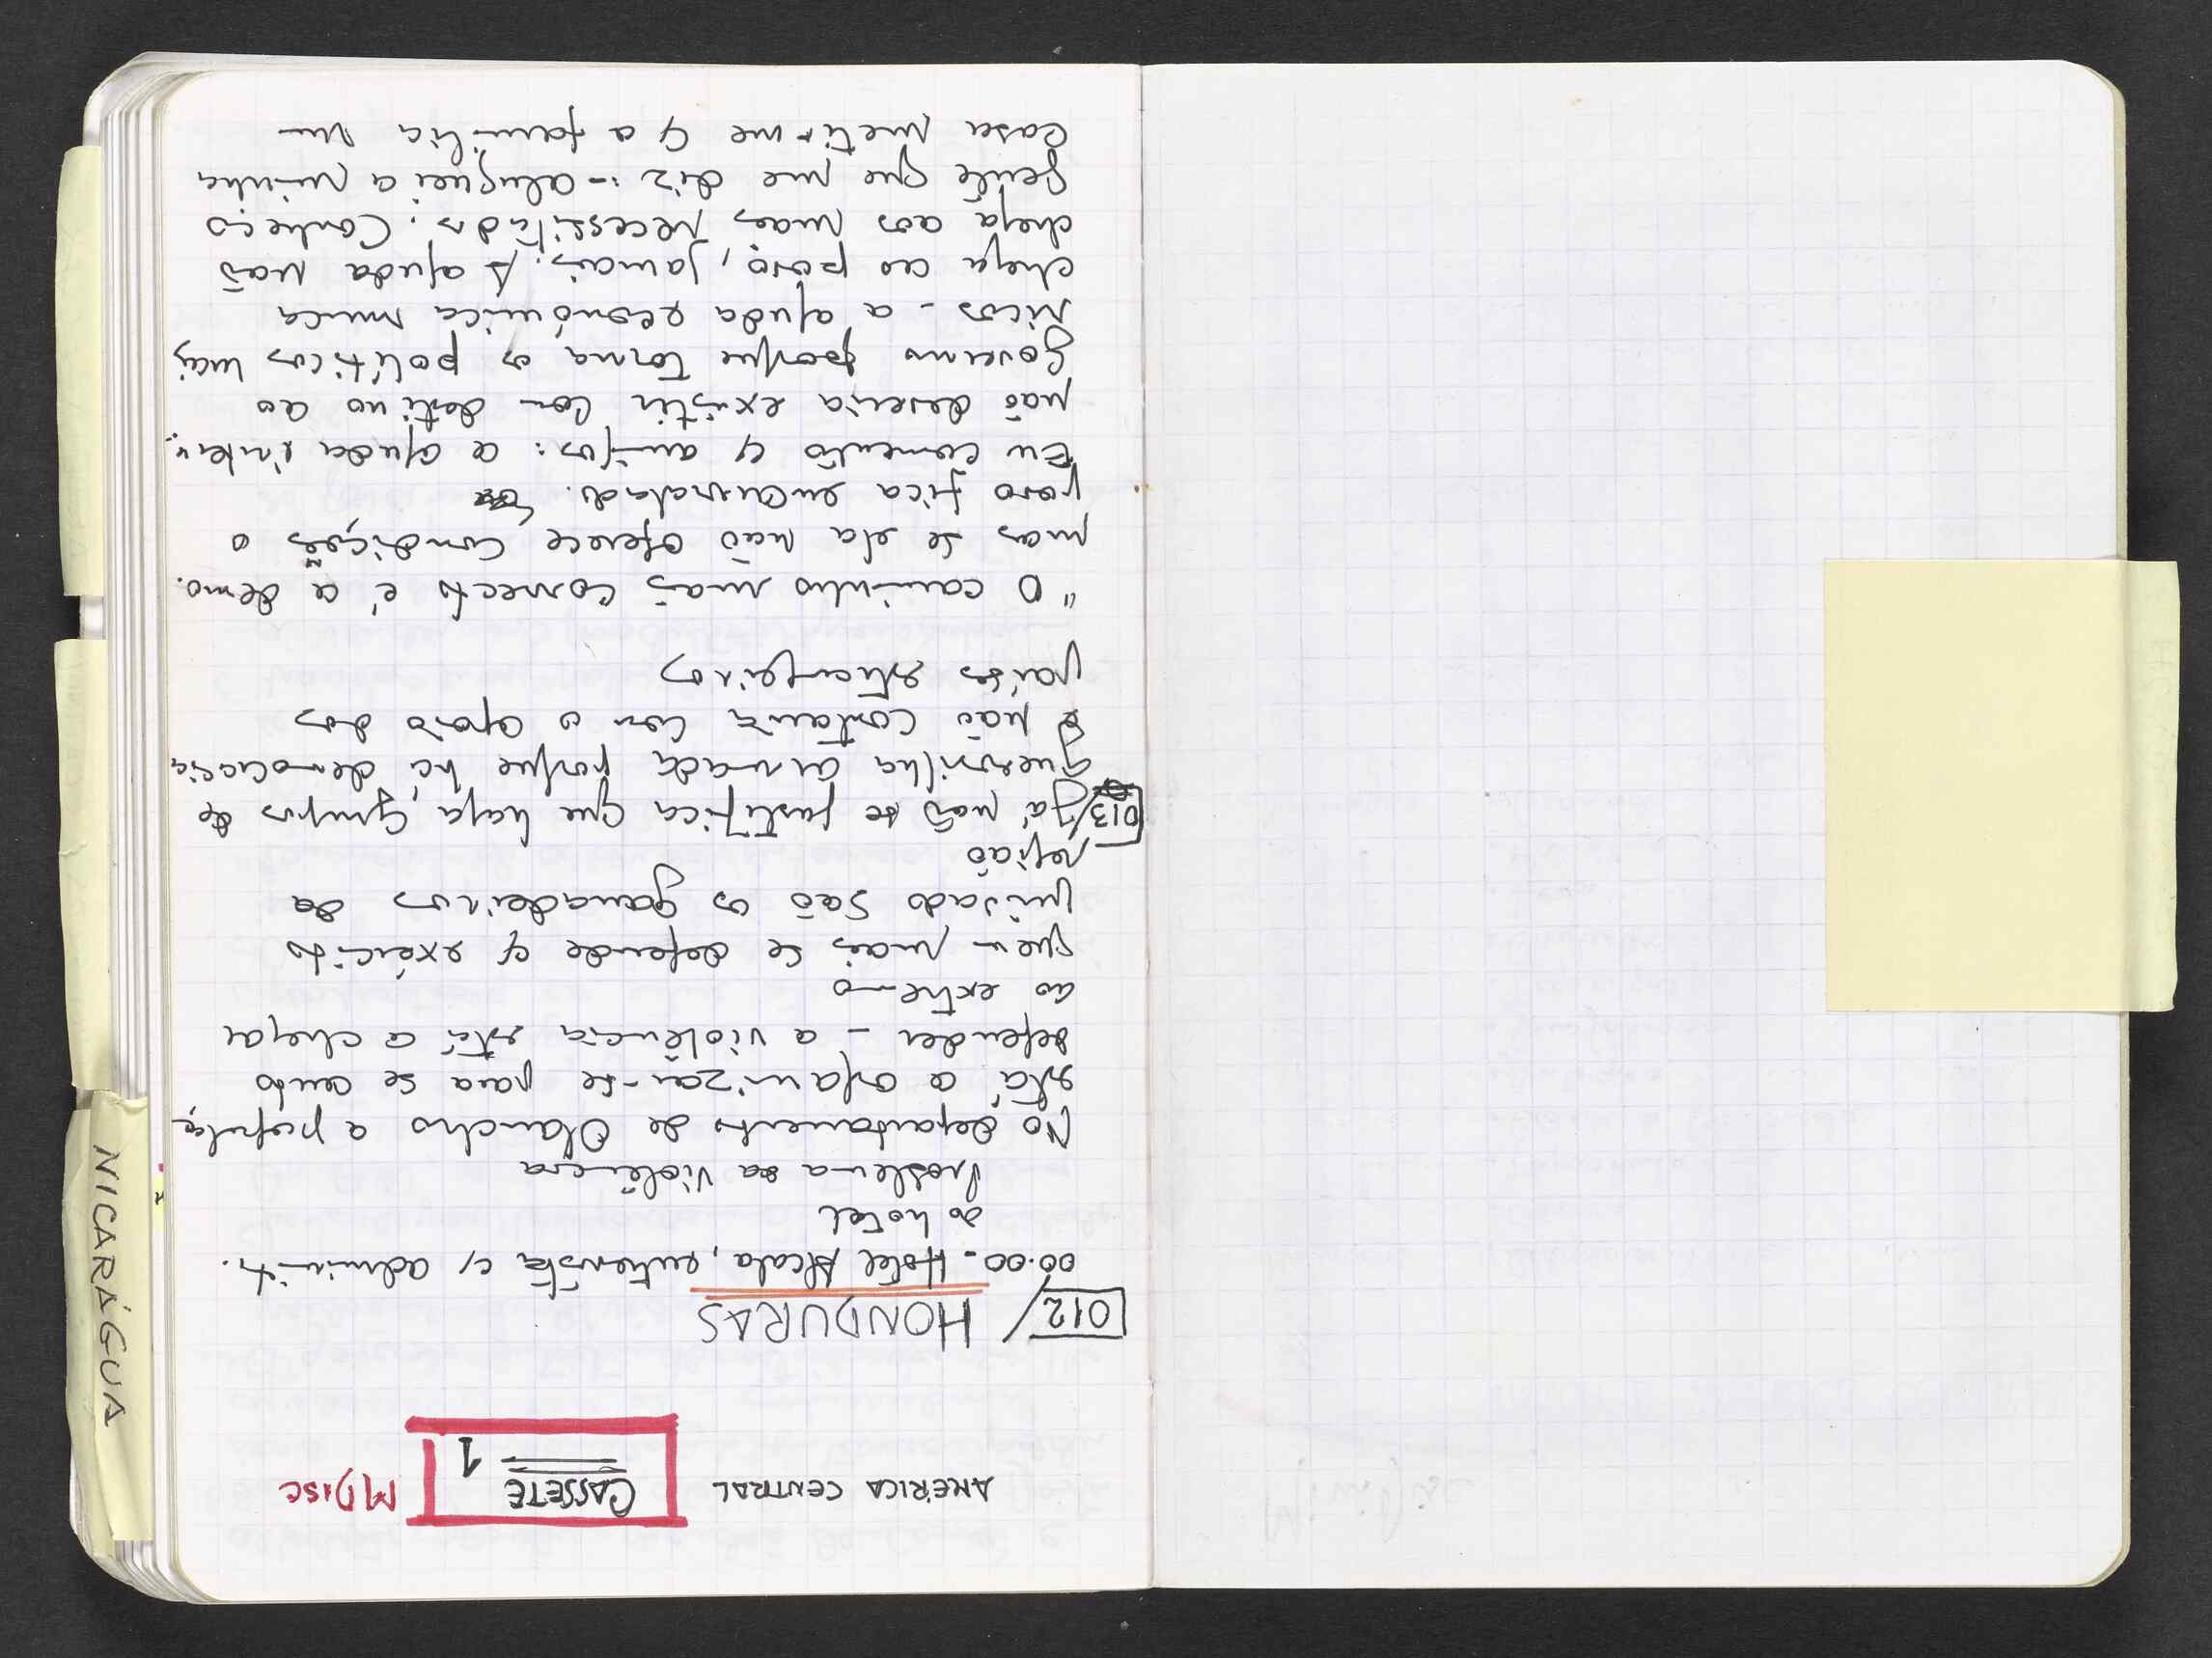 AMÉRICA CENTRAL CASSETE 1 MDISC
012/ HONDURAS
00.00 - Hotel Alcala, entrevista c/ administ.
do hotel
Problema da violência
No departamento de Olancho a populaç
está a organizar-se para se auto
defender - a violência está a chegar
ao extremo
quem mais se defende c/ exército
privado são os ganadeiros da
região
013/ Já não se justifica que haja grupos de
guerrilha armada porque há democracia
e não contam com o apoio dos
países estrangeiros
"O caminho mais correcto é a "demo.
mas se ela não oferece condições o
povo fica encurralado.
Eu comento c/ amigos: a ajuda intern.
não deveria existir com destino ao
governo porque torna os políticos mais
ricos - a ajuda económica nunca
chega ao povo, jamais. A ajuda não
chega aos mais necessitados. Conheço
gente que me diz :- aluguei a minha
casa meti-me c/ a família num
NICARÁGUA